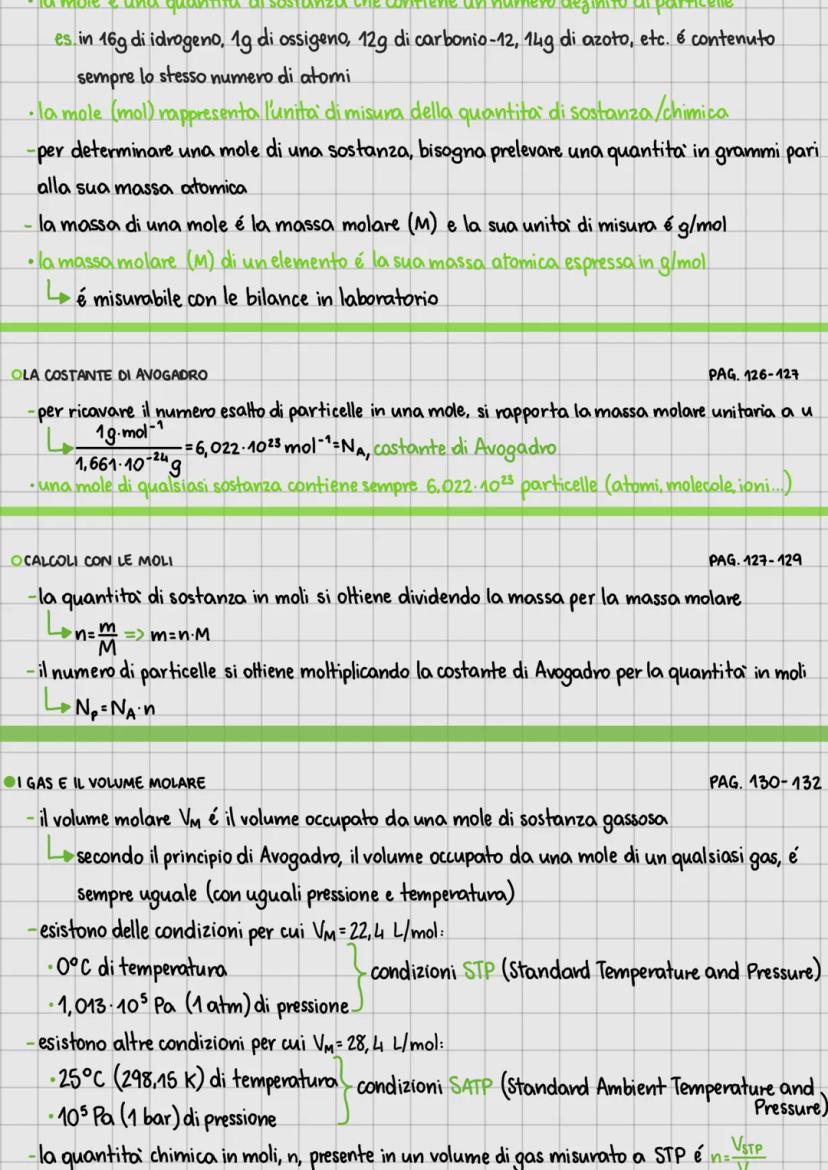 • la mole é una quantitá di sostanza che contiene un numero definito di particelle
es. in 16g di idrogeno, 1g di ossigeno, 12g di carbonio-12, 14g di azoto, etc. é contenuto
sempre lo stesso numero di atomi
• la mole (mol) rappresenta l'unitá di misura della quantitá di sostanza/chimica
- per determinare una mole di una sostanza, bisogna prelevare una quantitá in grammi pari
alla sua massa atomica
- la massa di una mole é la massa molare (M) e la sua unitá di misura é g/mol
• la massa molare (M) di un elemento é la sua massa atomica espressa in g/mol
↳ é misurabile con le bilance in laboratorio
LA COSTANTE DI AVOGADRO PAG. 126-127
- per ricavare il numero esatto di particelle in una mole, si rapporta la massa molare unitaria a u
↳ 1g·mol⁻¹ / 1,661·10⁻²⁴g = 6,022·10²³ mol⁻¹ = N_A, costante di Avogadro
• una mole di qualsiasi sostanza contiene sempre 6,022·10²³ particelle (atomi, molecole, ioni...)
CALCOLI CON LE MOLI PAG. 127-129
- la quantitá di sostanza in moli si ottiene dividendo la massa per la massa molare
↳ n = m/M => m=n·M
- il numero di particelle si ottiene moltiplicando la costante di Avogadro per la quantitá in moli
↳ N_P = N_A·n
I GAS E IL VOLUME MOLARE PAG. 130-132
- il volume molare V_M é il volume occupato da una mole di sostanza gassosa
↳ secondo il principio di Avogadro, il volume occupato da una mole di un qualsiasi gas, é
sempre uguale (con uguali pressione e temperatura)
- esistono delle condizioni per cui V_M = 22,4 L/mol:
• 0°C di temperatura
condizioni STP (Standard Temperature and Pressure)
• 1,013·10⁵ Pa (1 atm) di pressione
- esistono altre condizioni per cui V_M = 28,4 L/mol:
• 25°C (298,15 K) di temperatura
condizioni SATP (Standard Ambient Temperature and
Pressure)
• 10⁵ Pa (1 bar) di pressione
- la quantitá chimica in moli, n, presente in un volume di gas misurato a STP é n= V_STP